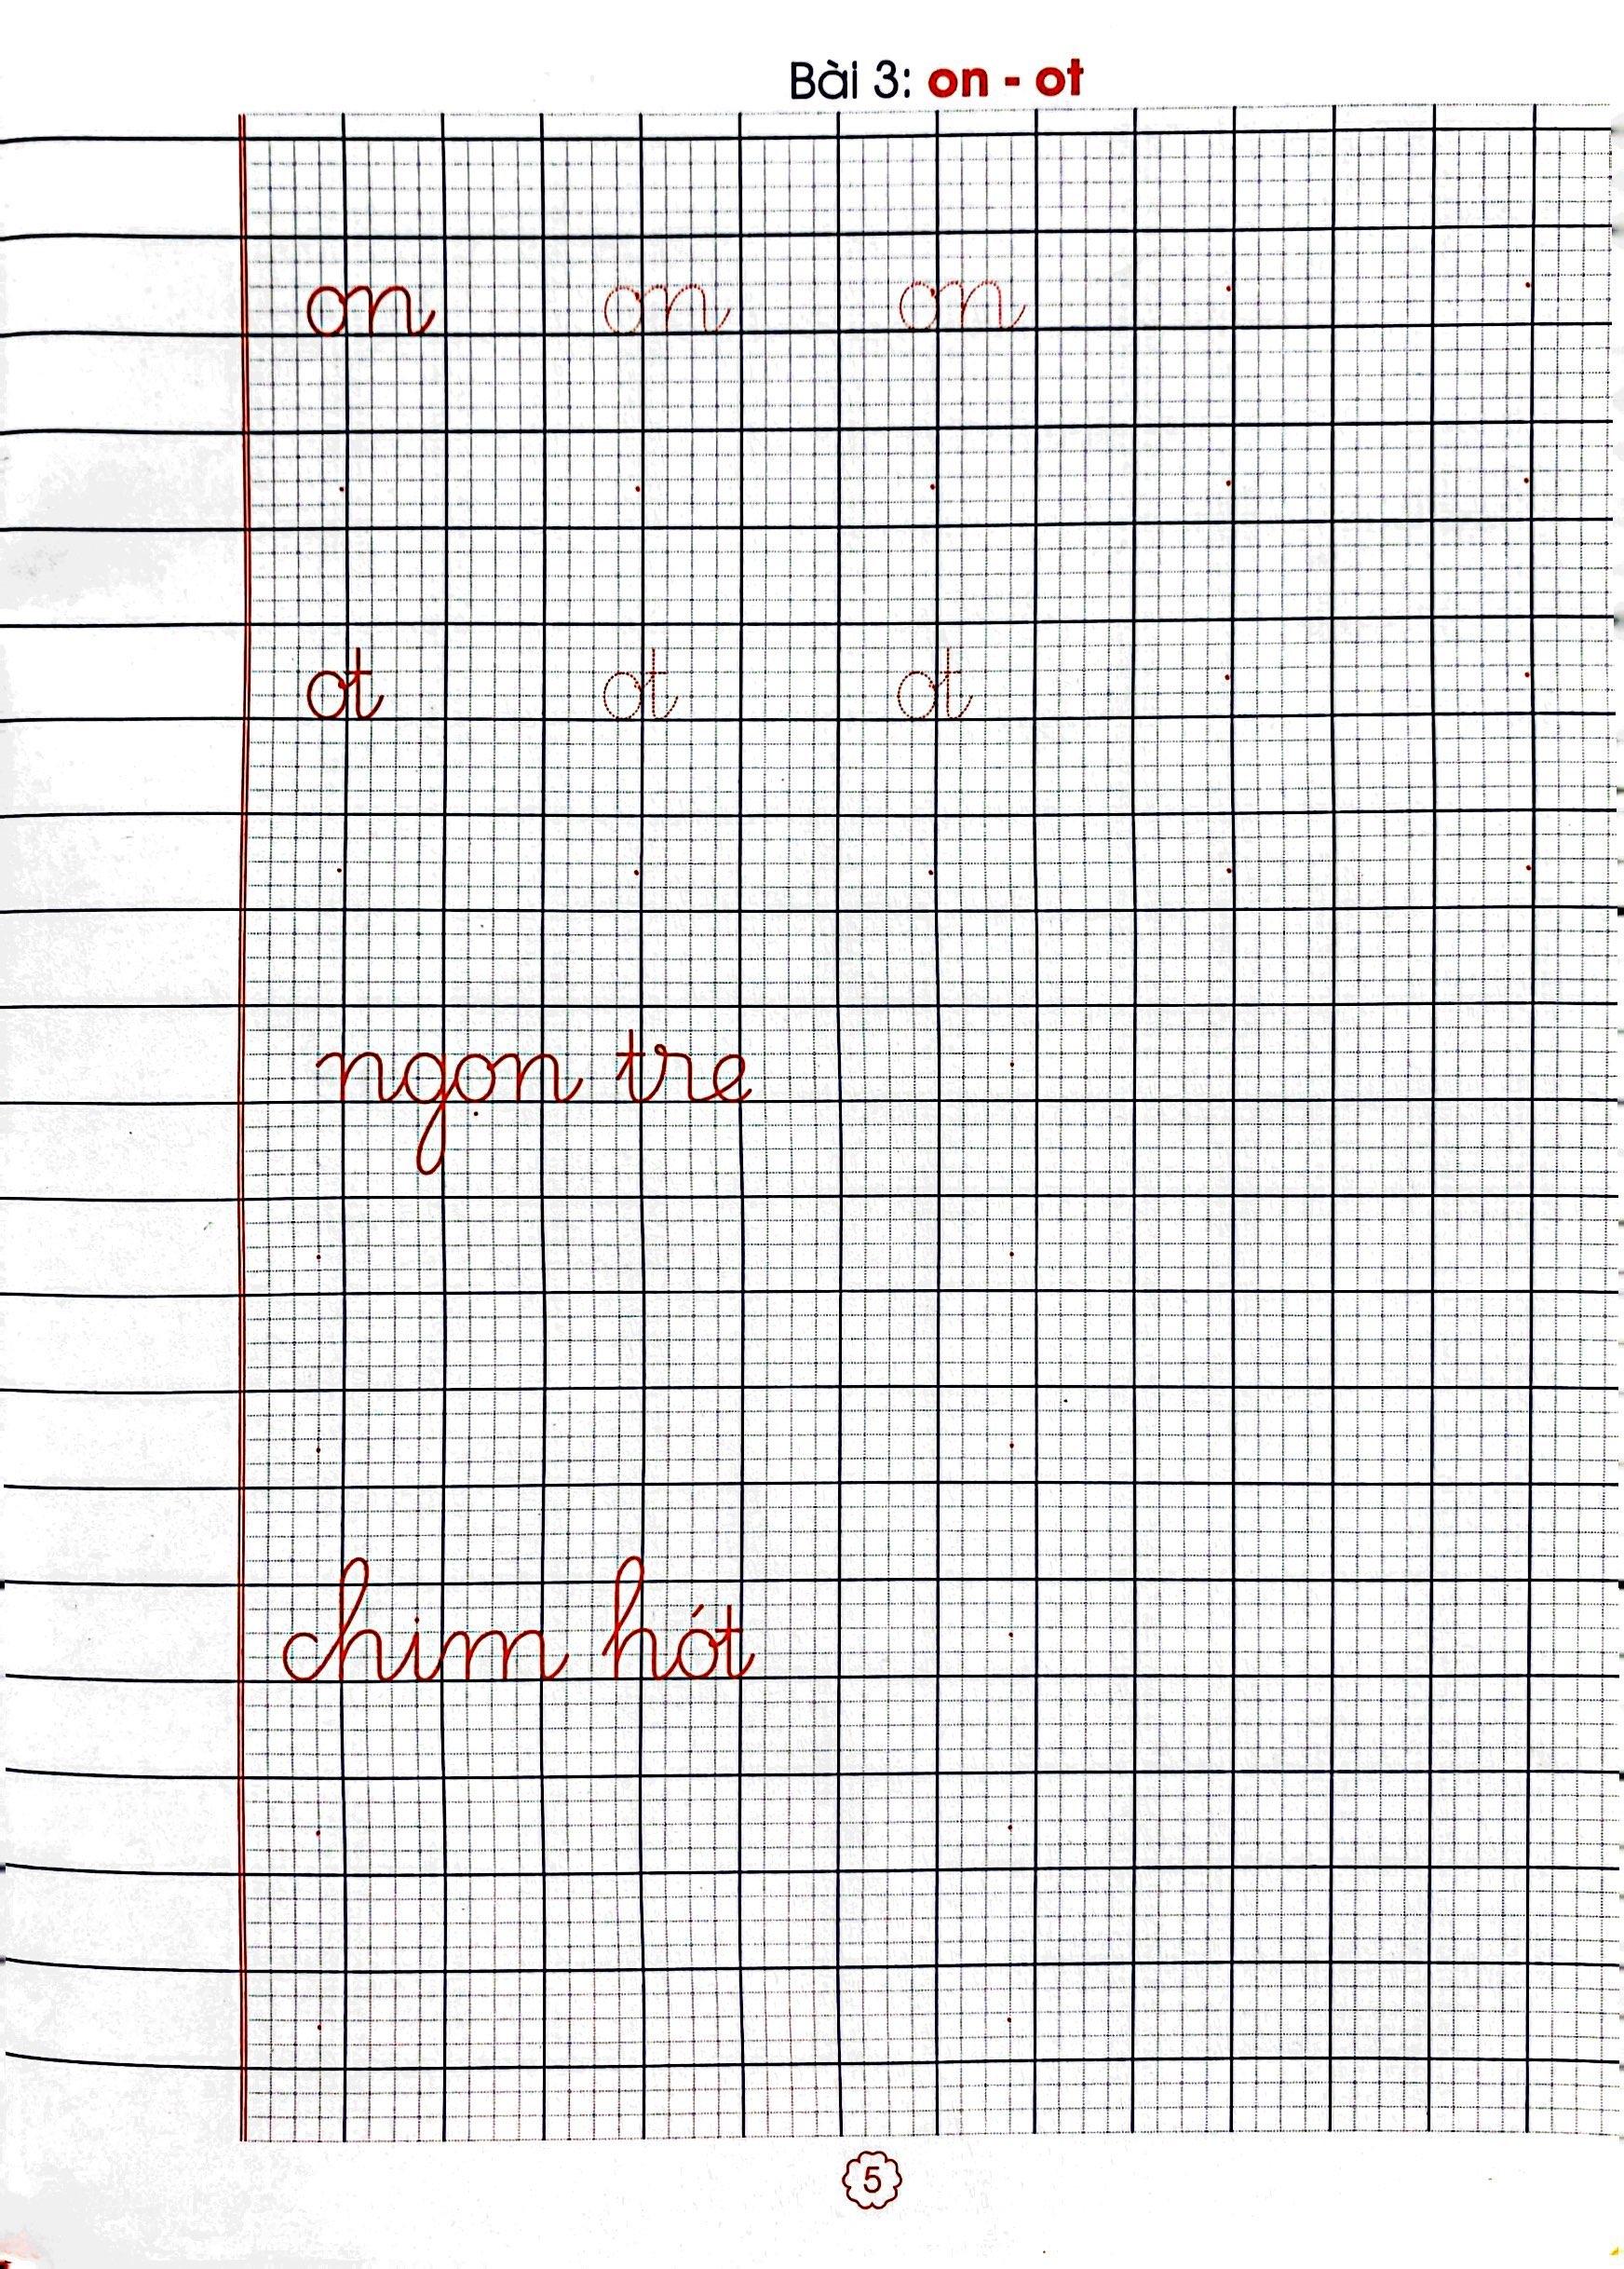 Bài 3: on - ot
on on on
ot ot ot
ngọn tre
chim hót
5